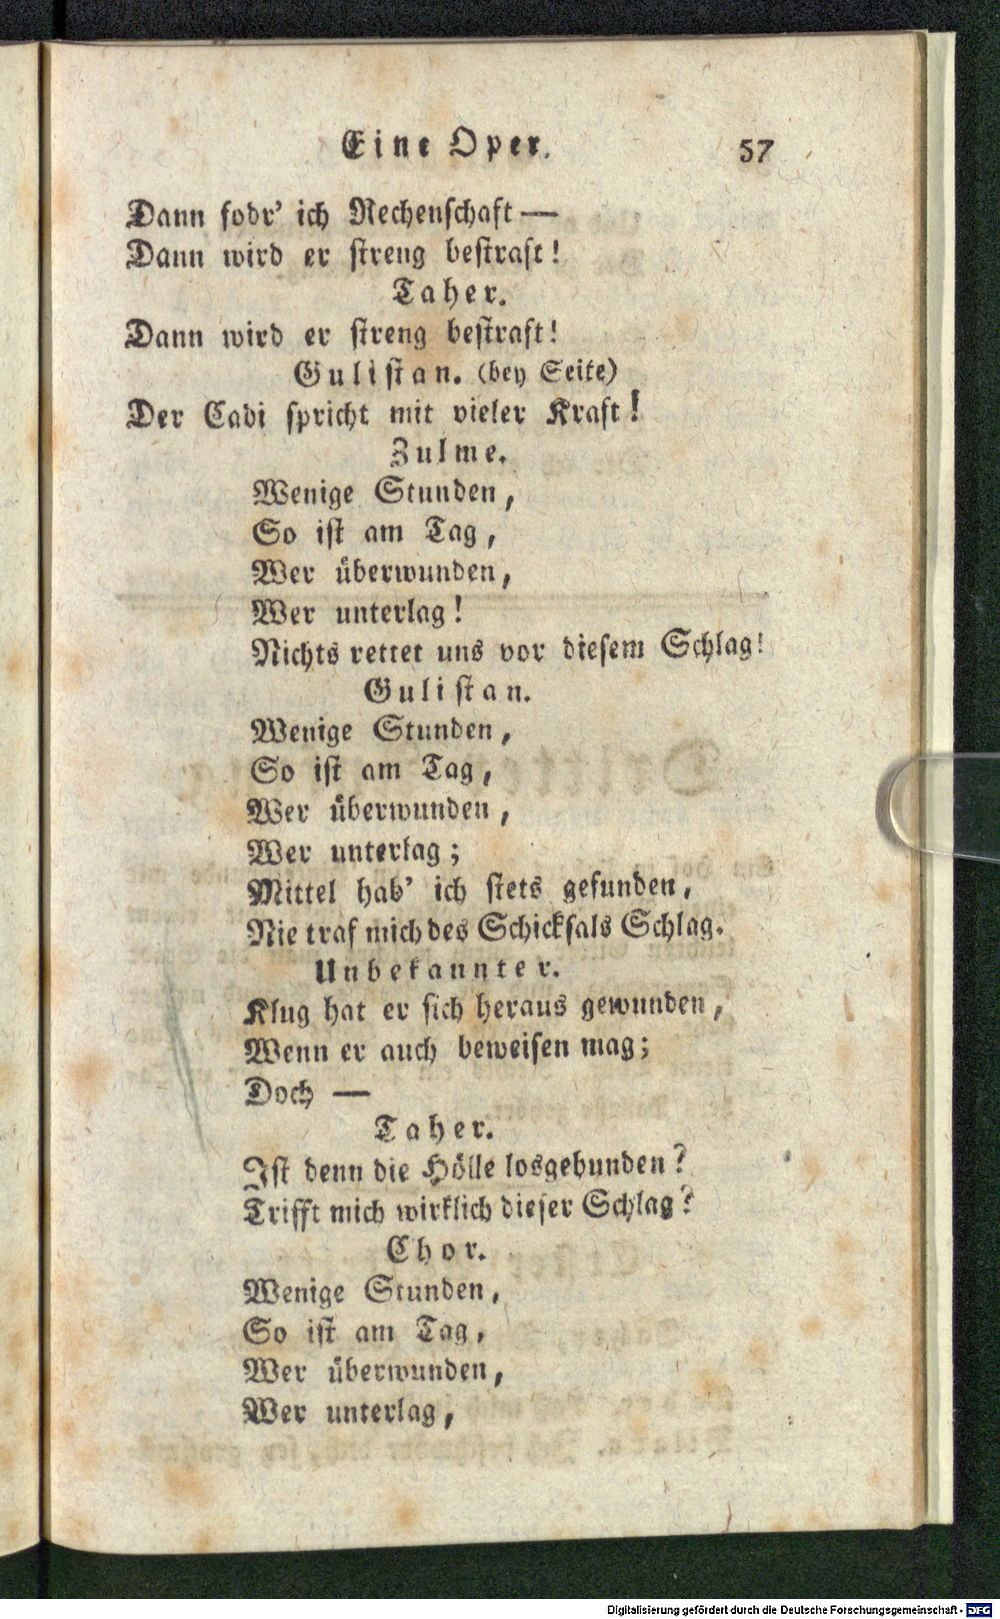 Eine Oper. 57
Dann fodr' ich Rechenschaft —
Dann wird er streng bestraft!
Taher.
Dann wird er streng bestraft!
Gulistan. (bey Seite)
Der Cadi spricht mit vieler Kraft!
Zulme.
Wenige Stunden,
So ist am Tag,
Wer überwunden,
Wer unterlag!
Nichts rettet uns vor diesem Schlag!
Gulistan.
Wenige Stunden,
So ist am Tag,
Wer überwunden,
Wer unterlag;
Mittel hab' ich stets gefunden,
Nie traf mich des Schicksals Schlag.
Unbekannter.
Klug hat er sich heraus gewunden,
Wenn er auch beweisen mag;
Doch —
Taher.
Ist denn die Hölle losgebunden?
Trifft mich wirklich dieser Schlag?
Chor.
Wenige Stunden,
So ist am Tag,
Wer überwunden,
Wer unterlag,
Digitalisierung gefördert durch die Deutsche Forschungsgemeinschaft - DFG